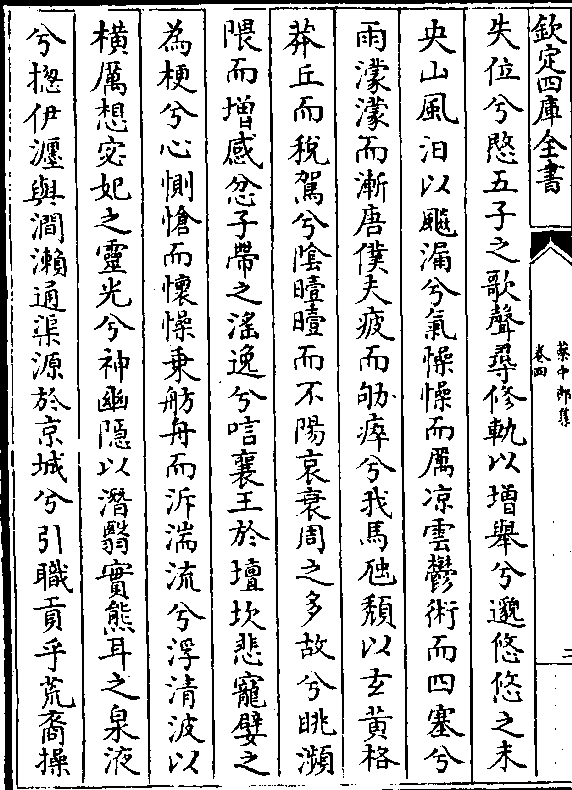 欽定四庫全書
蔡中郎集
卷四
三
失位兮愍五子之歌聲尋修軌以増舉兮邈悠悠之未
央山風汨以飈涌兮氣懆懆而厲凉雲鬱術而四塞兮
雨濛濛而漸唐僕夫疲而劬瘁兮我馬虺頽以玄黄格
莽丘而稅駕兮陰曀曀而不陽哀衰周之多故兮眺瀕
隈而增感忿子帶之滛逸兮唁襄王於壇坎悲寵嬖之
為梗兮心惻愴而懷懆乗舫舟而泝湍流兮浮清波以
橫厲想宓妃之靈光兮神幽隠以潛翳實熊耳之泉液
兮揔伊瀍與澗瀨通渠源於京城兮引職貢乎荒裔操